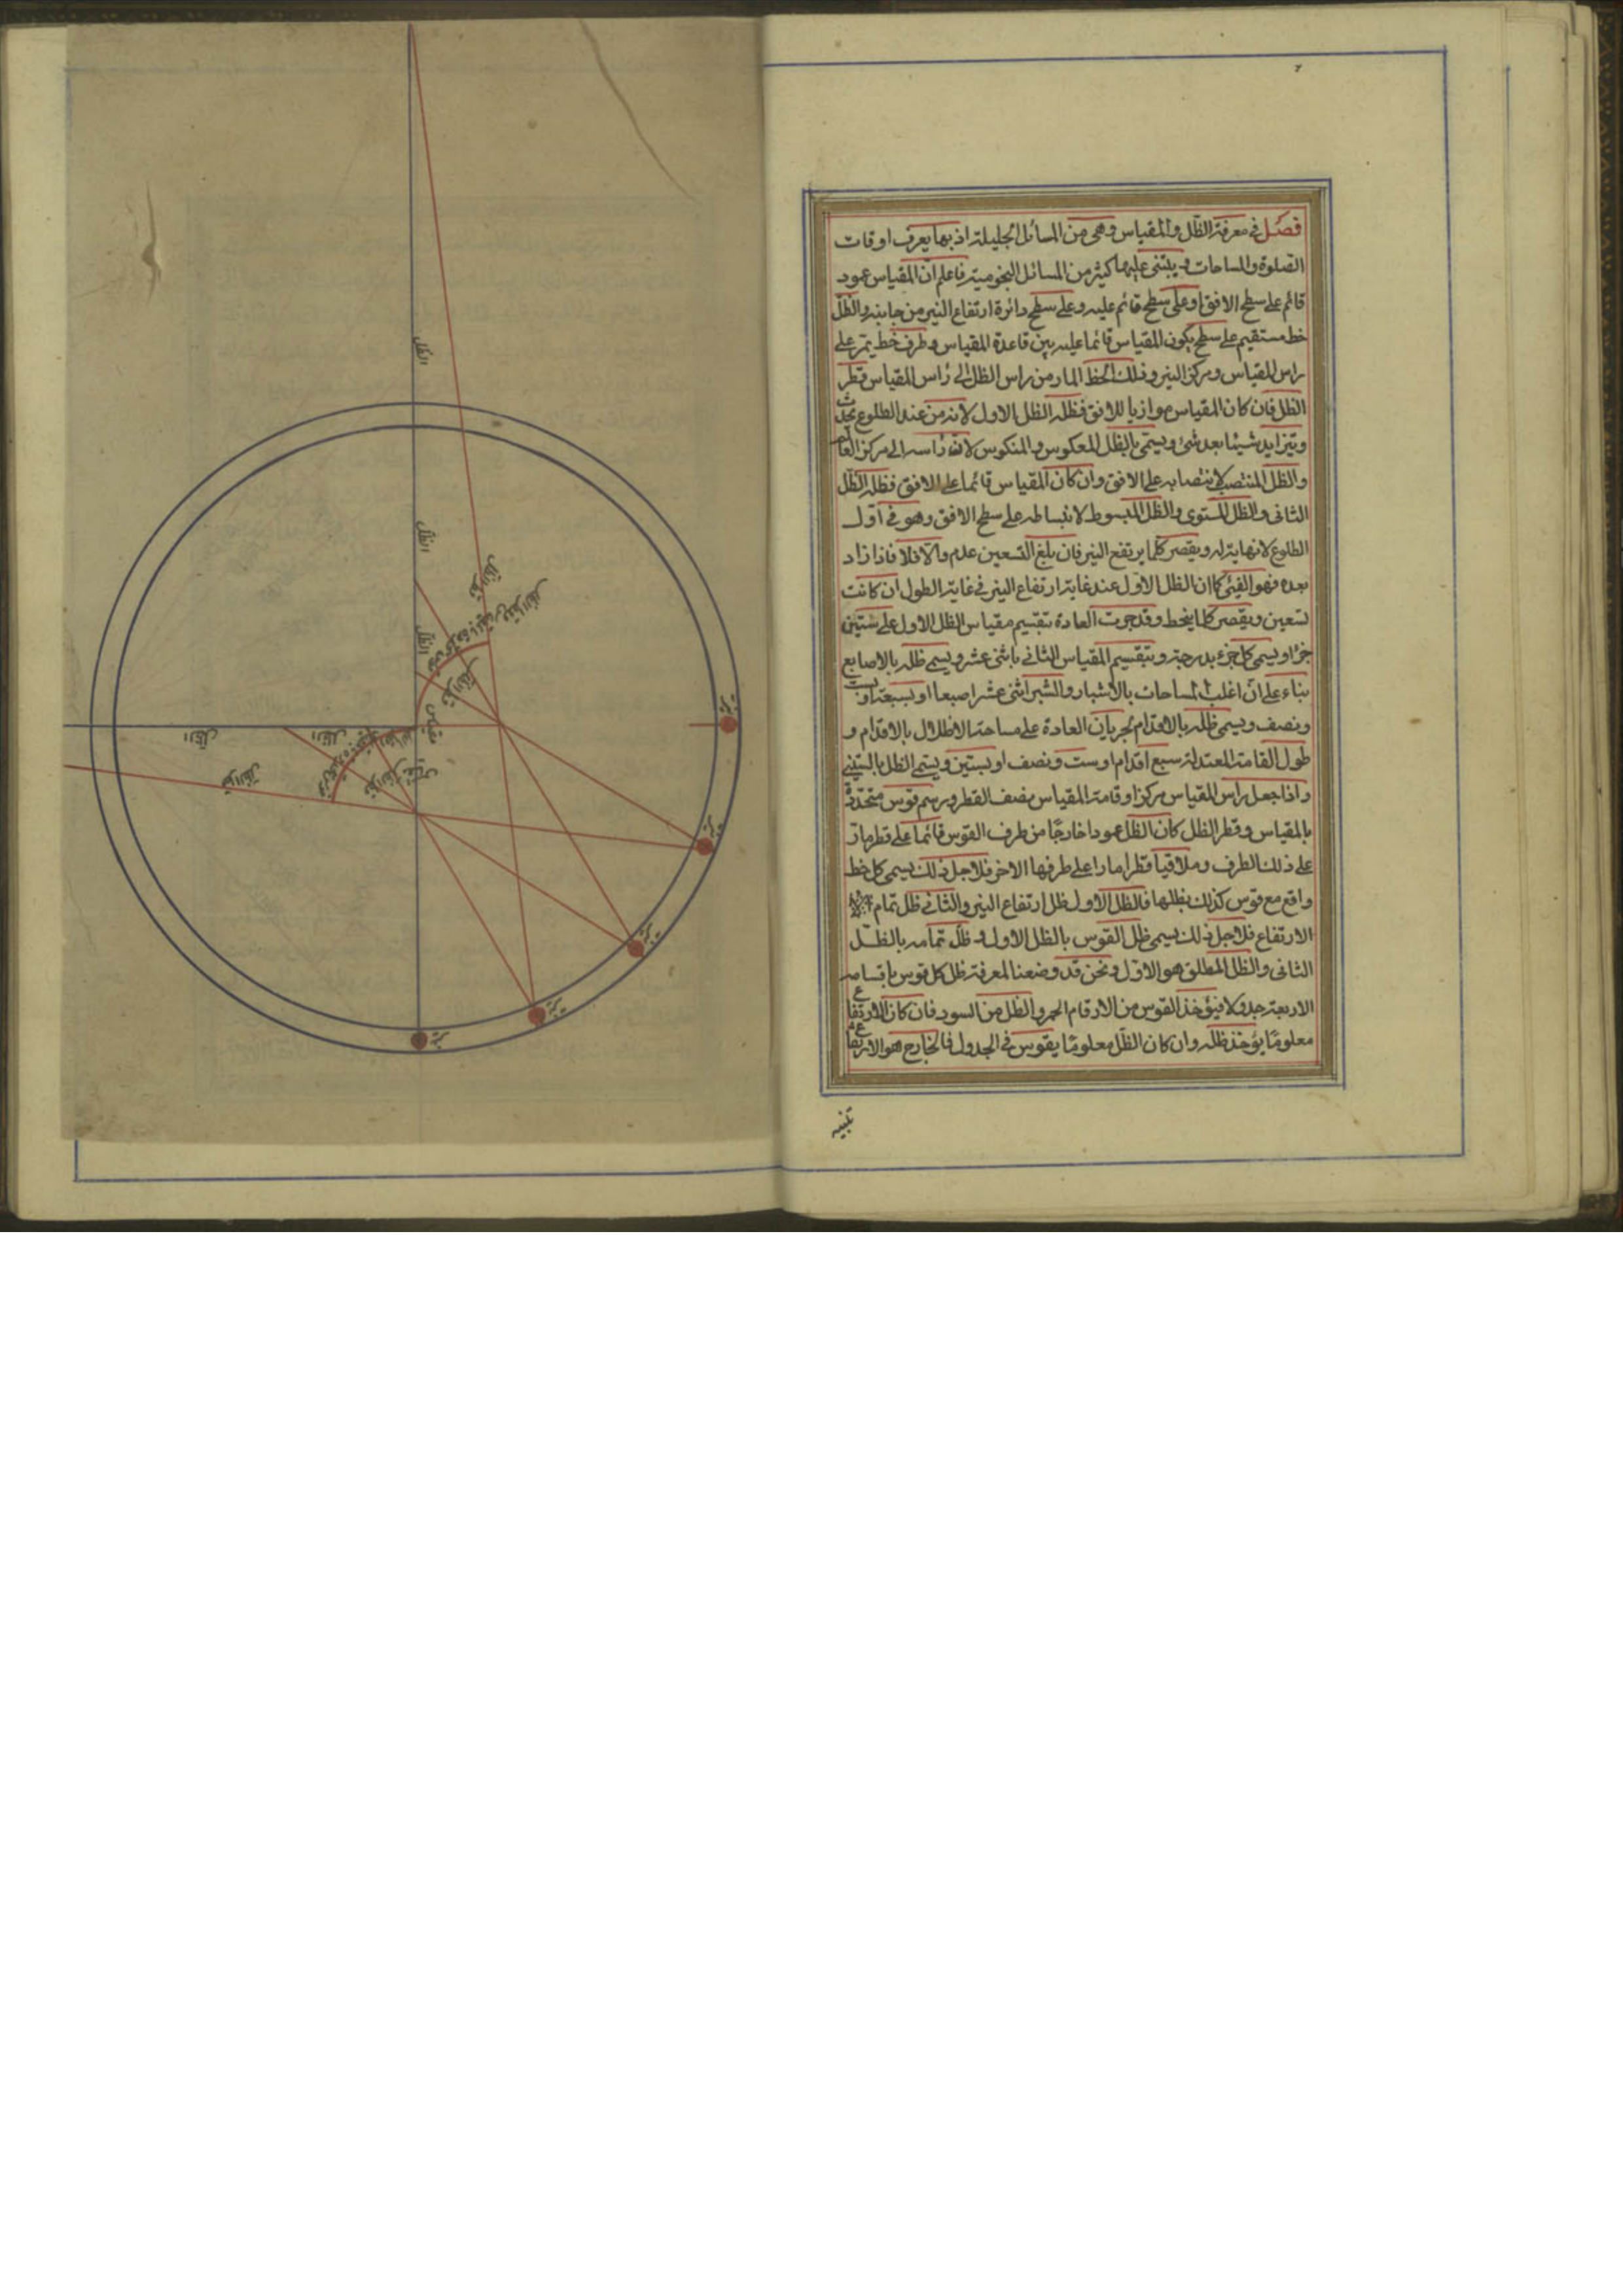 فصل في معرفة الظل والمقياس وهي من المسائل الجليلة اذ بها يعرف اوقات
الصلوة والمساحات ويبتنى عليها كثير من المسائل النجومية فاعلم ان المقياس عمود
قائم على سطح الافق او على سطح قائم عليه وعلى سطح دائرة ارتفاع النير من جانبه والظل
خط مستقيم على سطح يكون المقياس قائما عليه بين قاعدة المقياس وطرف خط يمر على
راس المقياس ومركز النير وذلك الخط المار من راس الظل الى راس المقياس قطر
الظل فان كان المقياس موازيا للافق فظله الظل الاول لانه من عند الطلوع يحدث
ويتزايد شيئا بعد شئ ويسمى بالظل المعكوس والمنكوس لان راسه الى مركز العالم
والظل المنتصب لانتصابه على الافق وان كان المقياس قائما على الافق فظله الظل
الثانى والظل المستوى والظل المبسوط لانبساطه على سطح الافق وهو في اول
الطلوع لا نهاية له ويقصر كلما يرتفع النير فان بلغ التسعين عدم والا فلا فاذا زاد
بعده فهو الفئ كما ان الظل الاول عند غاية ارتفاع النير في غاية الطول ان كانت
تسعين ويقصر كلما ينحط وقد جرت العادة بتقسيم مقياس الظل الاول على ستين
جزؤا ويسمى كل جزء بدرجة وبتقسيم المقياس الثانى باثنى عشر ويسمى ظله بالاصابع
بناء على ان اغلب المساحات بالاشبار والشبر اثنى عشر اصبعا او بسبعة او بست
ونصف ويسمى ظله بالاقدام لجريان العادة على مساحة الاظلال بالاقدام و
طول القامة المعتدلة سبع اقدام او ست ونصف او بستين ويسمى الظل بالستينى
واذا جعل راس المقياس مركزا وقامة المقياس نصف القطر ورسم قوس متحددة
بالمقياس وقطر الظل كان الظل عمودا خارجا من طرف القوس قائما على قطر مار
على ذلك الطرف وملاقيا قطرا مارا على طرفها الاخر فلاجل ذلك يسمى كل خط
واقع مع قوس كذلك بظلها فالظل الاول ظل ارتفاع النير والثانى ظل تمام
الارتفاع فلاجل ذلك يسمى ظل القوس بالظل الاول و ظل تمامه بالظل
الثانى والظل المطلق هو الاول ونحن قد وضعنا لمعرفة ظل كل قوس باقسامه
الاربعة جدولا فيؤخذ القوس من الارقام الحمر والظل من السود فان كان الارتفاع
معلوما يؤخذ ظله وان كان الظل معلوما يقوس في الجدول فالخارج هو الارتفاع
تنبيه
الظل
الظل
الظل
قطر الظل
قطر الظل
قطر الظل
مقياس
الظل
الظل
قطر الظل
قطر الظل
نير
نير
نير
نير
نير